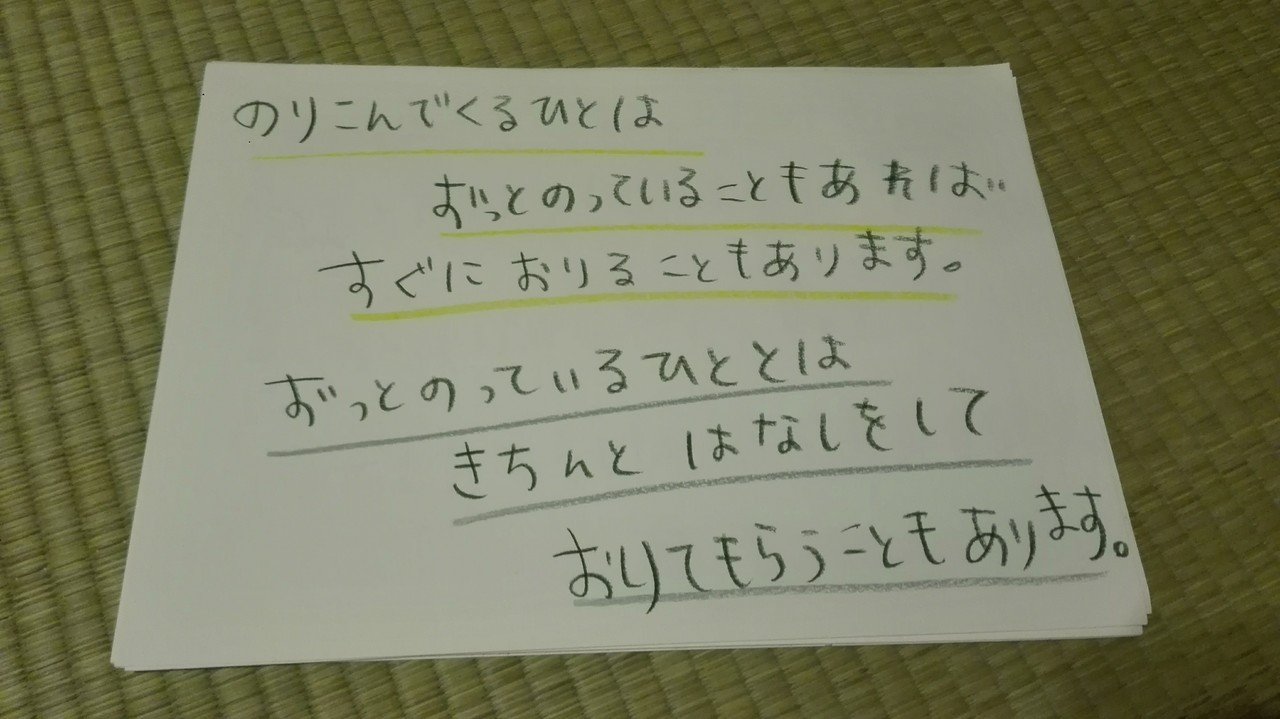 のりこんでくるひとは
ずっとのっていることもあれば
すぐに おりることもあります。
ずっとのっているひととは
きちんと はなしをして
おりてもらうことも あります。